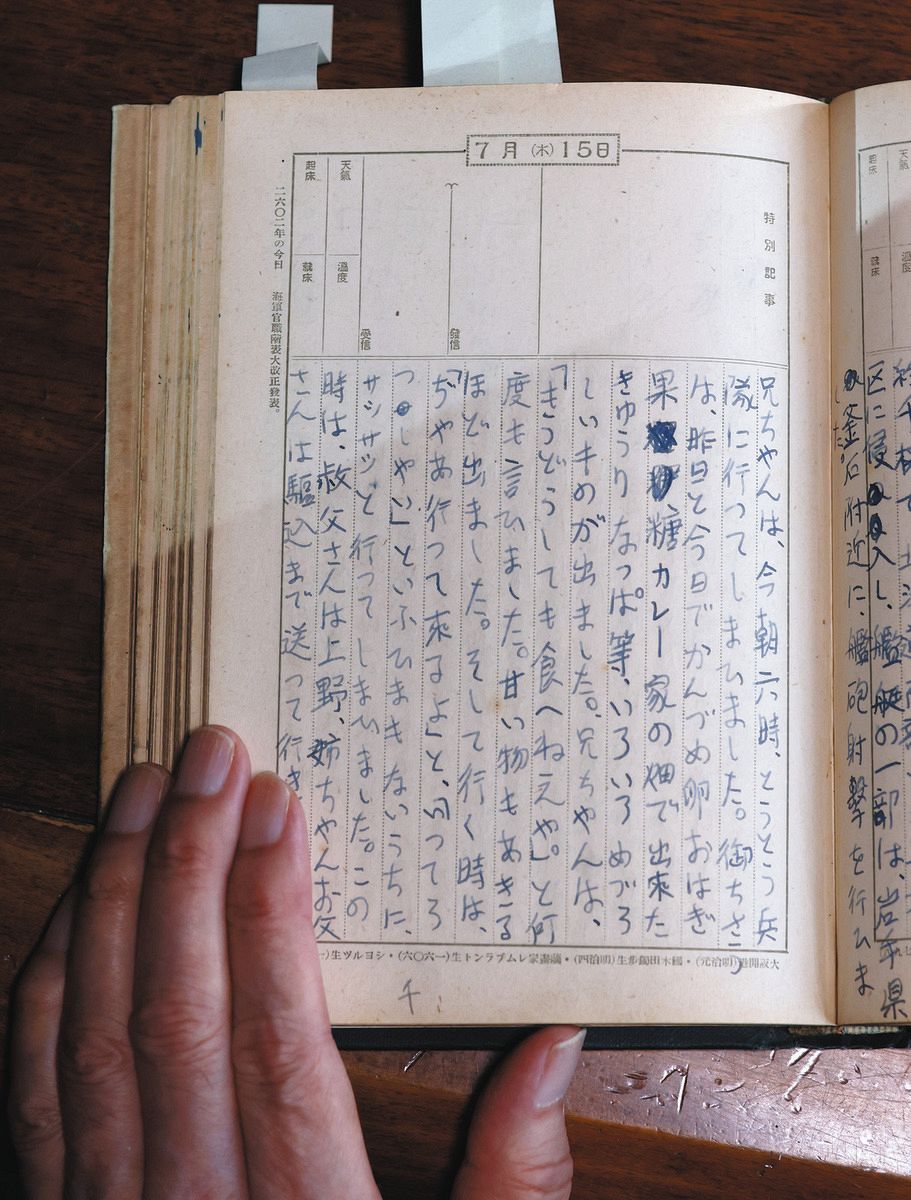 7月(木)15日
特別記事
發信
受信
天氣
溫度
起床
就床
兄ちゃんは、今朝六時、とうとう兵
隊に行ってしまひました。御ちさう
は、昨日と今日でかんづめ卵おはぎ
果糖カレー家の畑で出來た
きゅうりなっぱ等、いろいろめづら
しいものが出ました。兄ちゃんは、
「もうどうしても食へねえや」。と何
度も言ひました。甘い物もあきる
ほど出ました。そして行く時は、
「ぢゃあ行って來るよ」と、「行ってら
っしゃい」といふひまもないうちに、
サッサッと行ってしまひました。この
時は、叔父さんは上野、姉ちゃんお父
さんは駒込まで送って行き
二六〇二年の今日 海軍官職階表大改正發表。
大阪開港(明治元)・國木田獨步生(明治四)・繪畫家レムブラント生(一六〇六)・ショルツ生
千
天氣
溫度
起床
就床
区に侵入し、艦艇の一部は、岩手県
釜石附近に、艦砲射擊を行ひま
した。